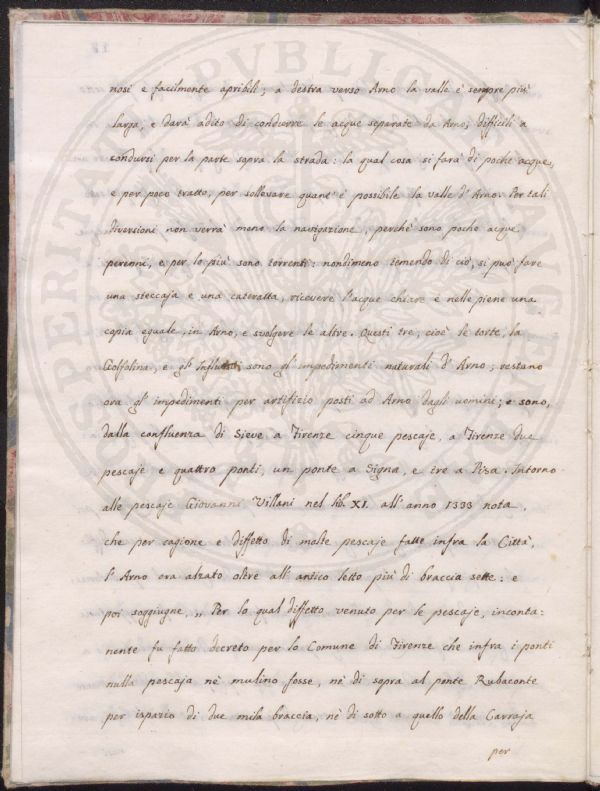 nosi e facilmente apribili; a destra verso Arno la valle è sempre più
larga, e darà adito di condurre le acque separate da Arno, difficili a
condursi per la parte sopra la strada: la qual cosa si farà di poche acque,
e per poco tratto, per sollevare quant' è possibile la valle d' Arno. Per tali
diversioni non verrà meno la navigazione, perchè sono poche acque
perenni, e per lo più sono torrenti: nondimeno temendo di ciò, si può fare
una steccaja e una cateratta, ricevere l'acque chiare e nelle piene una
copia eguale, in Arno, e svolgere le altre. Questi tre, cioè le torte, la
Golfolina, e gl' Influenti sono gl' impedimenti naturali d' Arno; restano
ora gl' impedimenti per artifizio posti ad Arno dagli uomini; e sono,
dalla confluenza di Sieve a Firenze cinque pescaje, a Firenze due
pescaje e quattro ponti, un ponte a Signa, e tre a Pisa. Intorno
alle pescaje Giovanni Villani nel lib. XI. all' anno 1333 nota,
che per cagione e diffetto di molte pescaje fatte infra la Città,
l' Arno era alzato oltre all' antico letto più di braccia sette: e
poi soggiugne, „ Per lo qual diffetto venuto per le pescaje, inconta:
nente fu fatto decreto per lo Comune di Firenze che infra i ponti
nulla pescaja nè mulino fosse, nè di sopra al ponte Rubaconte
per ispazio di due mila braccia, nè di sotto a quello della Carraja
per
PROSPERITATI PVBLICAE AVGENDAE